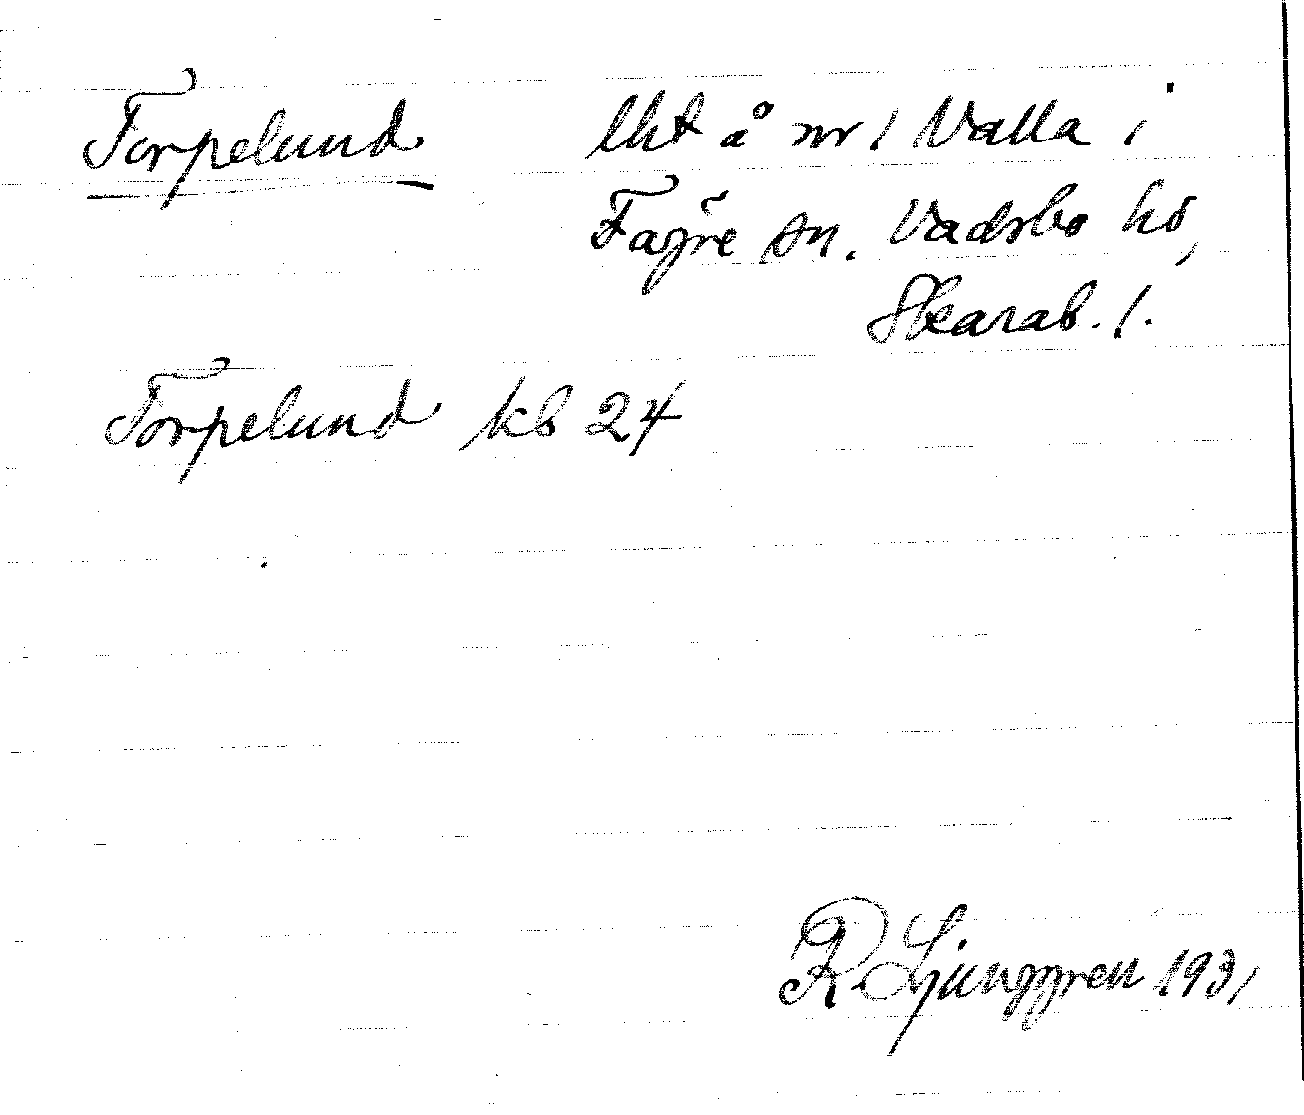 Torpelund lht å nr 1 Valla i
Fägre sn. Vadsbo hd,
Skarab. l.
Torpelund kb 24
R. Ljunggren 1931